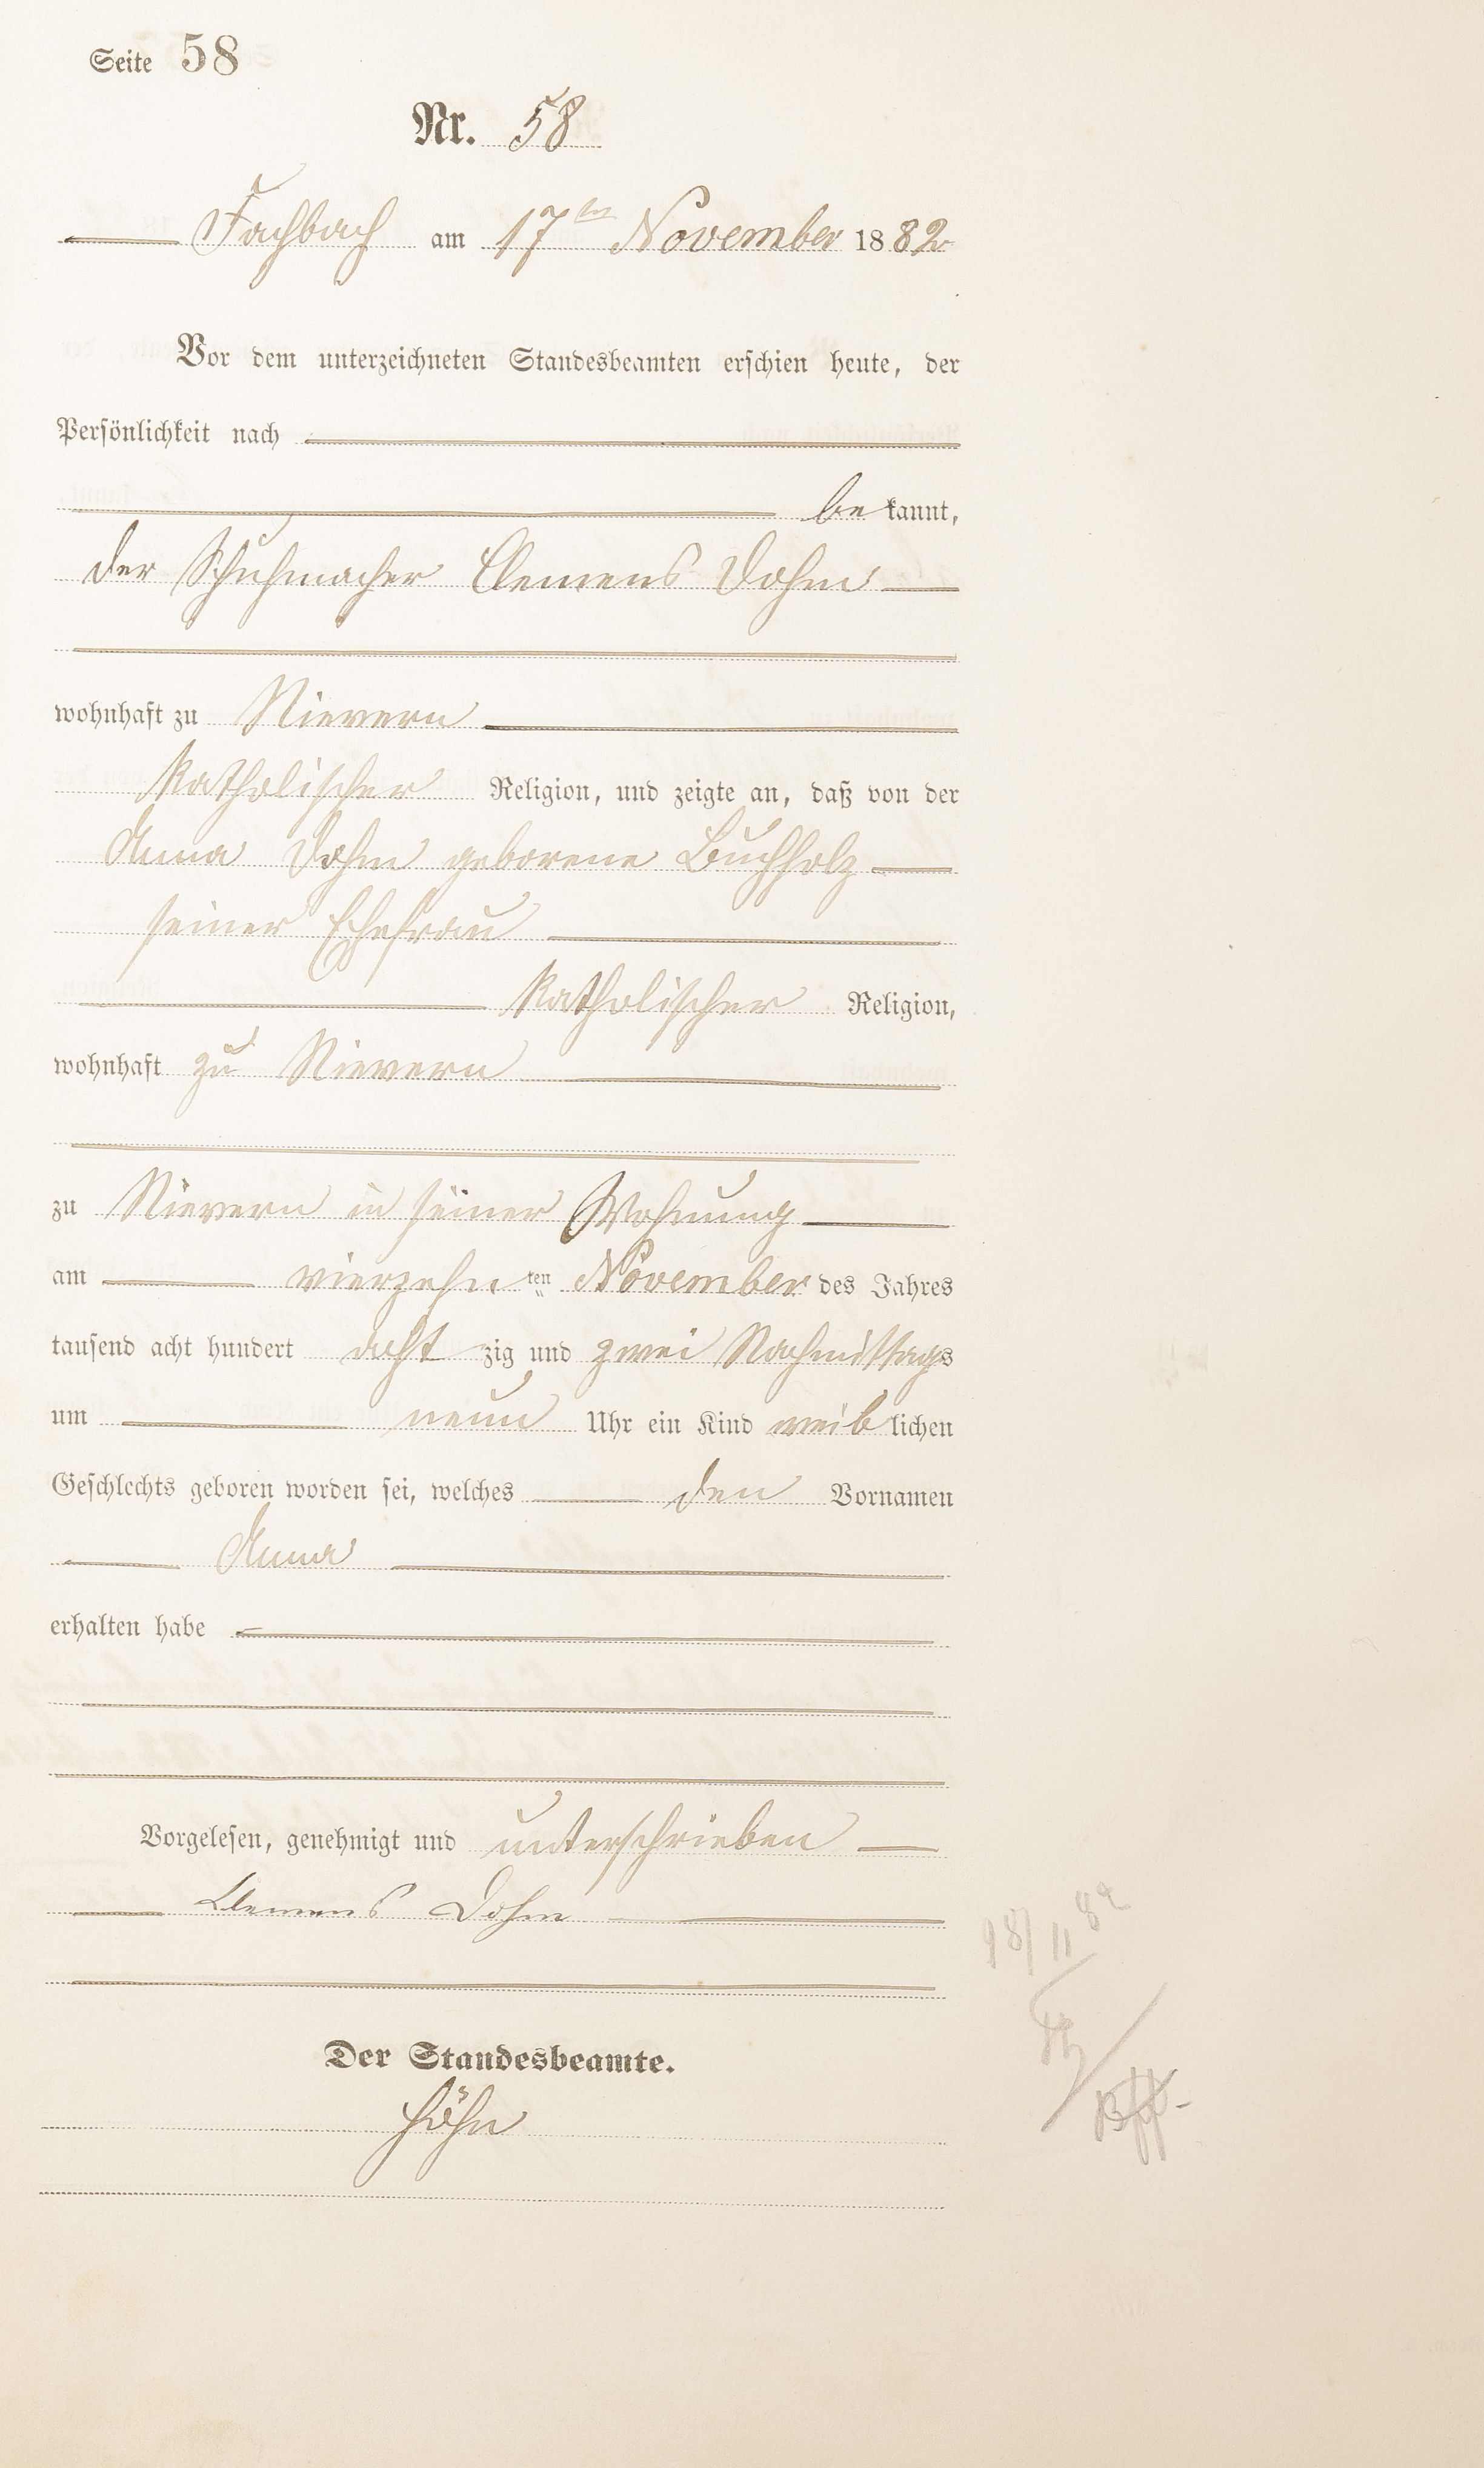 Seite 58
Nr. 58
Fachbach am 17ten November 1882
Vor dem unterzeichneten Standesbeamten erschien heute, der
Persönlichkeit nach
bekannt,
der Schuhmacher Clemens Dohm
wohnhaft zu Nievern
katholischer Religion, und zeigte an, daß von der
Anna Dohm geborene Buchholz
seiner Ehefrau
katholischer Religion,
wohnhaft zu Nievern
zu Nievern in seiner Wohnung
am vierzehnten November des Jahres
tausend acht hundert achtzig und zwei Nachmittags
um neun Uhr ein Kind weiblichen
Geschlechts geboren worden sei, welches den Vornamen
Anna
erhalten habe
Vorgelesen, genehmigt und unterschrieben
Clemens Dohm
Der Standesbeamte.
Höhn